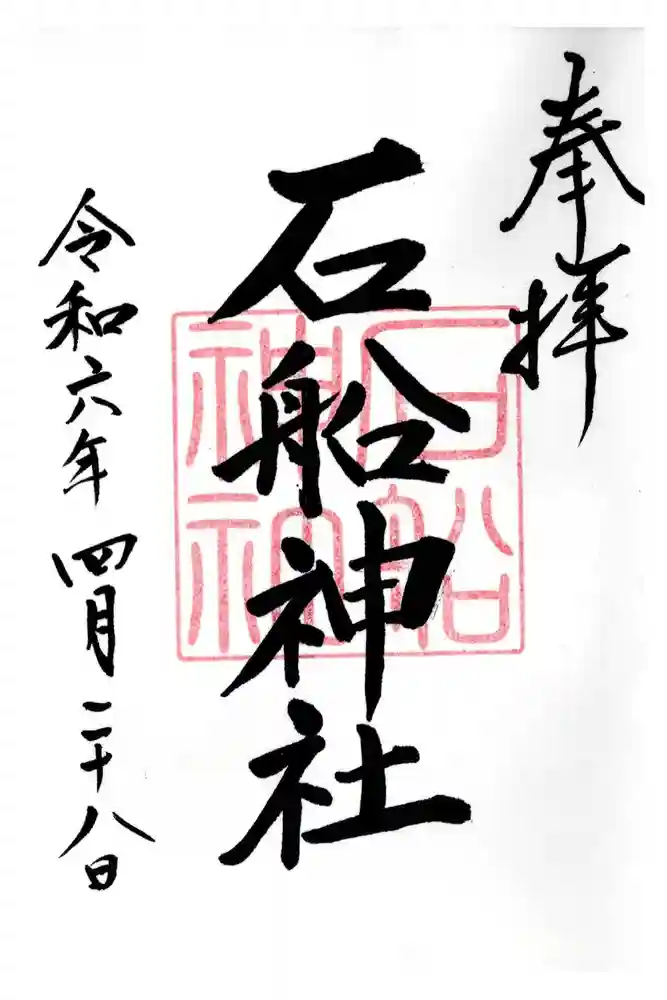 奉拝
石船神社
令和六年 四月二十八日